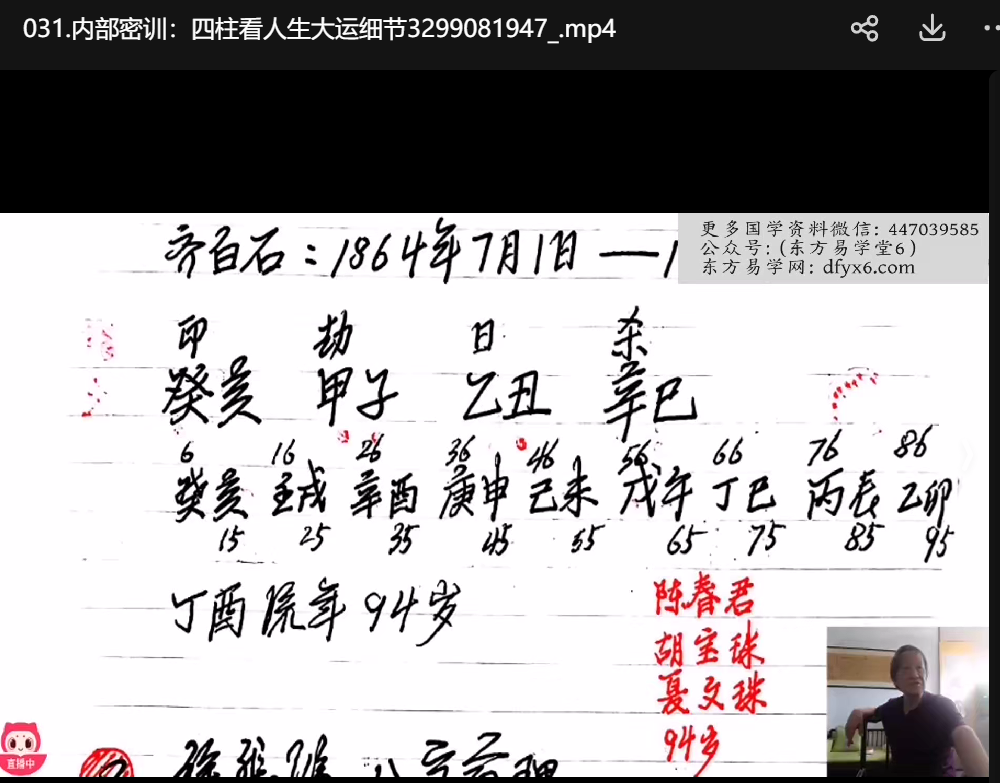 031.内部密训：四柱看人生大运细节3299081947_.mp4
更多国学资料微信：447039585
公众号：(东方易学堂6)
东方易学网：dfyx6.com
齐白石：1864年7月1日 —1
印 劫 日 杀
癸亥 甲子 乙丑 辛巳
6 16 26 36 46 56 66 76 86
癸亥 壬戌 辛酉 庚申 己未 戊午 丁巳 丙辰 乙卯
15 25 35 45 55 65 75 85 95
丁酉流年94岁
陈春君
胡宝珠
夏文珠
94岁
直播中